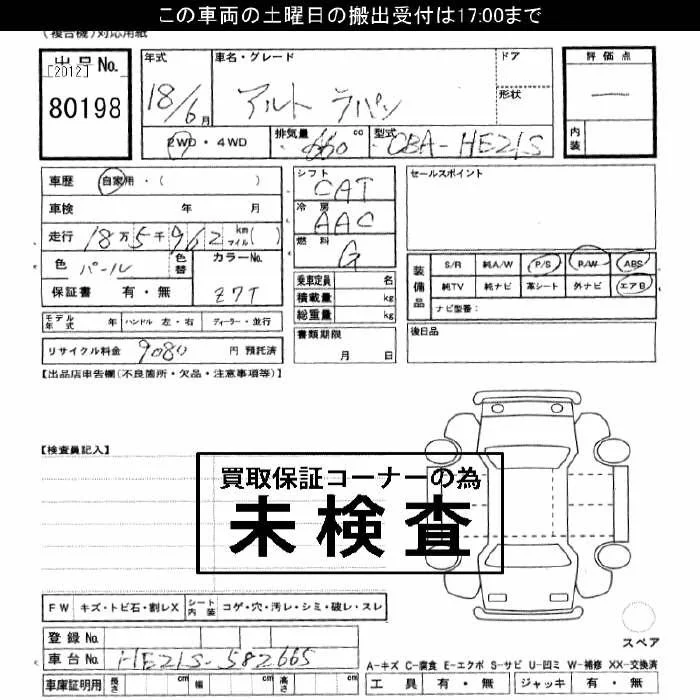 この車両の土曜日の搬出受付は17:00まで
(複合機)対応用紙
出品No.
[2012]
80198
年式
18/6月
車名・グレード
アルト ラパン
ドア
形状
2WD・4WD
排気量
660 cc
型式
CBA-HE21S
評価点
―
内装
車歴 自家用・( )
車検 年 月
走行 18万5千962 km マイル( )
色 パール
色替
カラーNo.
Z7T
保証書 有・無
モデル年式 年 ハンドル 左・右 ディーラー・並行
リサイクル料金 9080 円 預託済
シフト
CAT
冷房
AAC
燃料
G
乗車定員 名
積載量 kg
総重量 kg
書類期限
月 日
セールスポイント
装備品
S/R 純A/W P/S P/W ABS
純TV 純ナビ 革シート 外ナビ エアB
ナビ型番:
後日品
【出品店申告欄(不良箇所・欠品・注意事項等)】
【検査員記入】
買取保証コーナーの為
未検査
FW キズ・トビ石・割レX シート内装 コゲ・穴・汚レ・シミ・破レ・スレ
登録No.
車台No. HE21S-582665
車庫証明用 長さ cm 幅 cm 高さ cm
スペア
A-キズ C-腐食 E-エクボ S-サビ U-凹ミ W-補修 XX-交換済
工具 有・無 ジャッキ 有・無